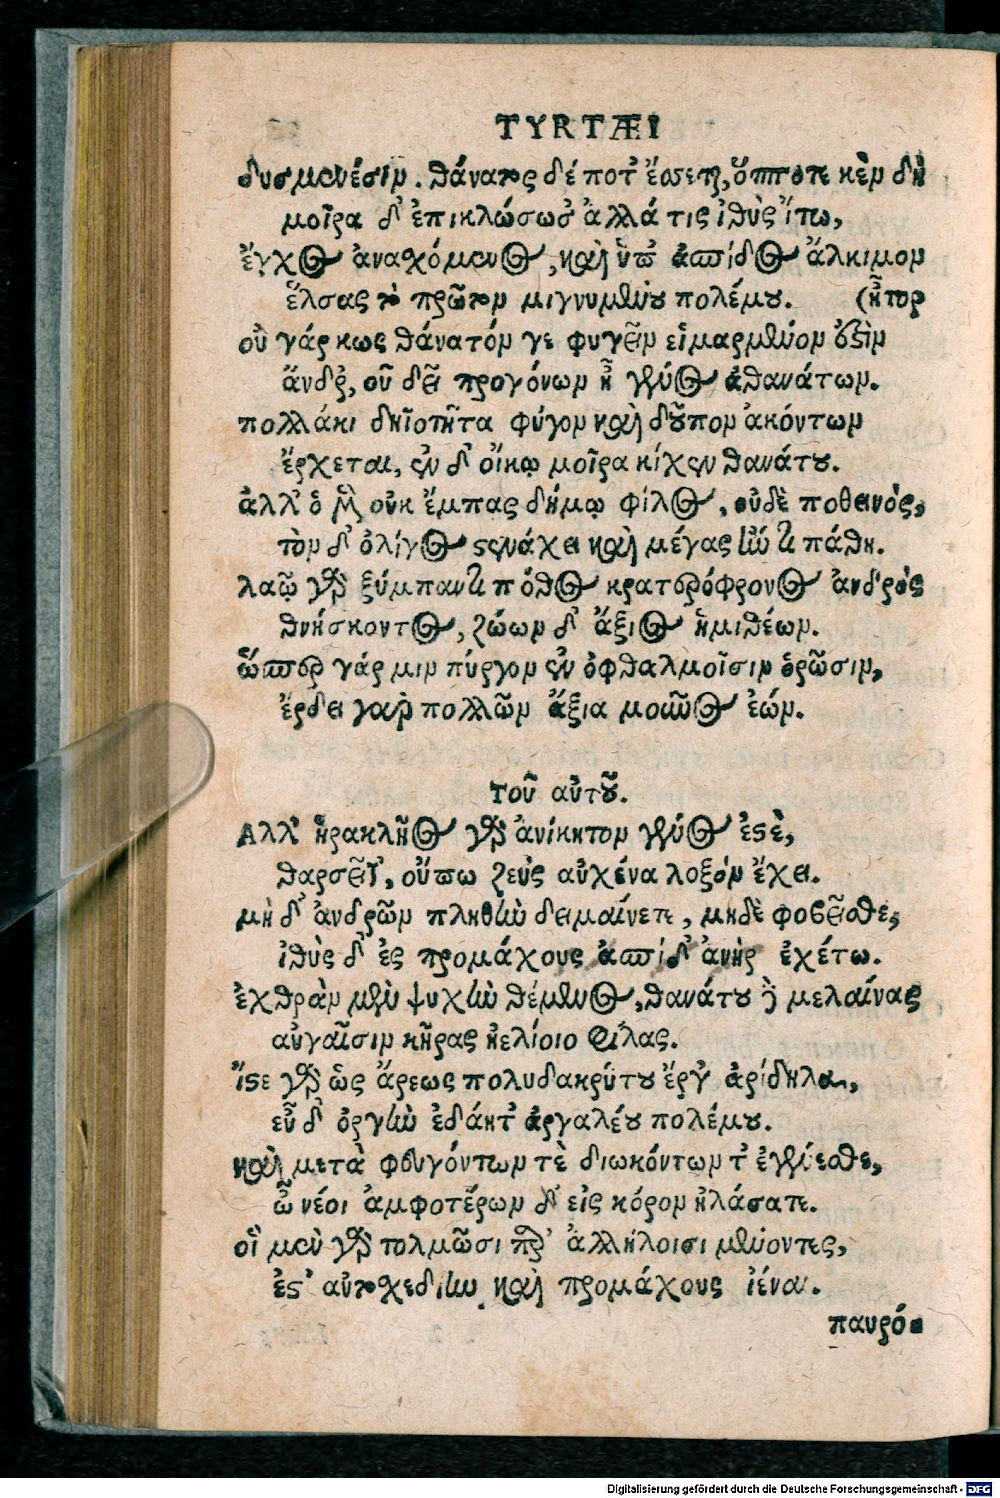 TYRTÆI
δυσμενέσιν. θάνατος δέ ποτ᾽ ἔσσεται, ὅππστε κὲν δὴ
μοῖρα δ᾽ ἐπικλώσωσ᾽ ἀλλά τις ἰθὺς ἴτω,
ἔγχος ἀναχόμενος, καὶ ὑπ᾽ ἀσπίδος ἄλκιμον
ἔλσας τὸ πρῶτον μιγνυμένου πολέμου. (ἦτορ
οὐ γάρ κως θάνατόν γε φυγεῖν εἱμαρμένον ἐστὶν
ἄνδρ᾽, οὐ δ᾽ εἶ προγόνων ἦ γένος ἀθανάτων.
πολλάκι δηϊοτῆτα φύγον καὶ δοῦπον ἀκόντων
ἔρχεται, ἐν δ᾽ οἴκῳ μοῖρα κίχεν θανάτου.
ἀλλ᾽ ὁ μὲν οὐκ ἔμπας δήμῳ φίλος, οὐδὲ ποθεινός,
τὸν δ᾽ ὀλίγος στενάχει καὶ μέγας ἤν τι πάθη.
λαῷ γὰρ ξύμπαντι πόθος κρατερόφρονος ἀνδρὸς
θνήσκοντος, ζώων δ᾽ ἄξιος ἡμιθέων.
ὥσπερ γάρ μιν πύργον ἐν ὀφθαλμοῖσιν ὁρῶσιν,
ἔρδει γὰρ πολλῶν ἄξια μοῦνος ἐών.
τοῦ αὐτοῦ.
Αλλ᾽ ἡρακλῆος γὰρ ἀνίκητον γένος ἐστὲ,
θαρσεῖτ᾽, οὔπω ζεὺς αὐχένα λοξὸν ἔχει.
μὴ δ᾽ ἀνδρῶν πληθὺν δειμαίνετε, μηδὲ φοβεῖσθε,
ἰθὺς δ᾽ ἐς προμάχους ἀσπίδ᾽ ἀνὴρ ἐχέτω.
ἐχθρὰν μὲν ψυχὴν θέμενος, θανάτου δὲ μελαίνας
αὐγαῖσιν κῆρας ἠελίοιο φίλας.
ἴστε γὰρ ὡς ἄρεως πολυδακρύτου ἔργ᾽ ἀρίδηλα,
εὖ δ᾽ ὀργὴν ἐδάητ᾽ ἀργαλέου πολέμου.
καὶ μετὰ φευγόντων τὲ διωκόντων τ᾽ ἐγένεσθε,
ὦ νέοι ἀμφοτέρων δ᾽ εἰς κόρον ἠλάσατε.
οἳ μὲν γὰρ τολμῶσι παρ᾽ ἀλλήλοισι μένοντες,
ἐς τ᾽ αὐτοχεδίην καὶ προμάχους ἰέναι.
παυρό-
Digitalisierung gefördert durch die Deutsche Forschungsgemeinschaft - DFG